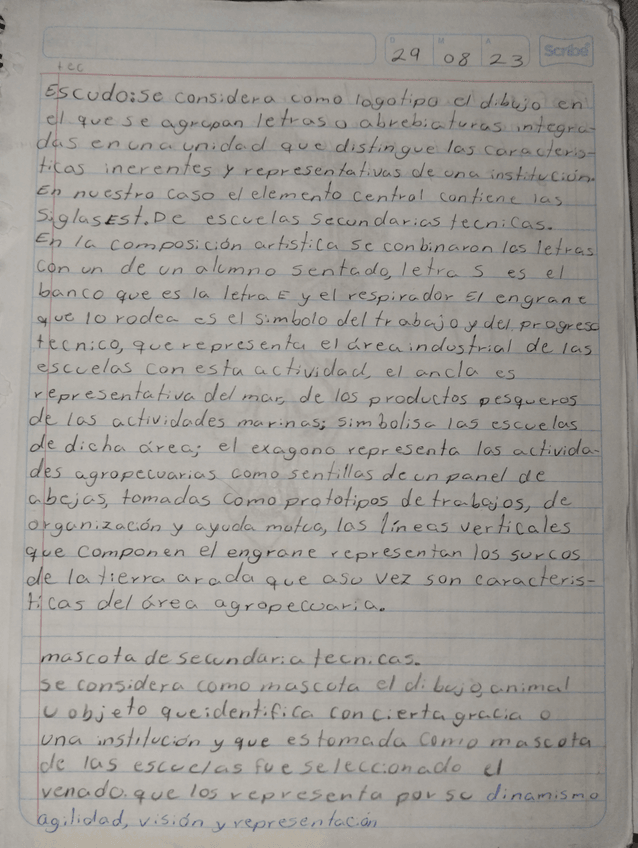 29 08 23 Scribe
tec
Escudo: se considera como logotipo el dibujo en
el que se agrupan letras o abrebiaturas integra-
das en una unidad que distingue las caracteris-
ticas inerentes y representativas de una institución.
En nuestro caso el elemento central contiene las
Siglas Est. De escuelas secundarias tecnicas.
En la composición artistica se conbinaron los letras
con un de un alumno sentado, letra S es el
banco que es la letra E y el respirador El engrane
que lo rodea es el simbolo del trabajo y del progreso
tecnico, que representa el área industrial de las
escuelas con esta actividad, el ancla es
representativa del mar, de los productos pesqueros
de las actividades marinas; simbolisa las escuelas
de dicha área; el exagono representa las activida-
des agropecuarias como sentillas de un panel de
abejas, tomadas como prototipos de trabajos, de
organización y ayuda mutua, las líneas verticales
que componen el engrane representan los surcos
de la tierra arada que asu vez son caracteris-
ticas del área agropecuaria.
mascota de secundaria tecnicas.
se considera como mascota el dibujo, animal
u objeto que identifica con cierta gracia o
una institución y que es tomada como mascota
de las escuelas fue seleccionado el
venado. que los representa por su dinamismo
agilidad, visión y representación